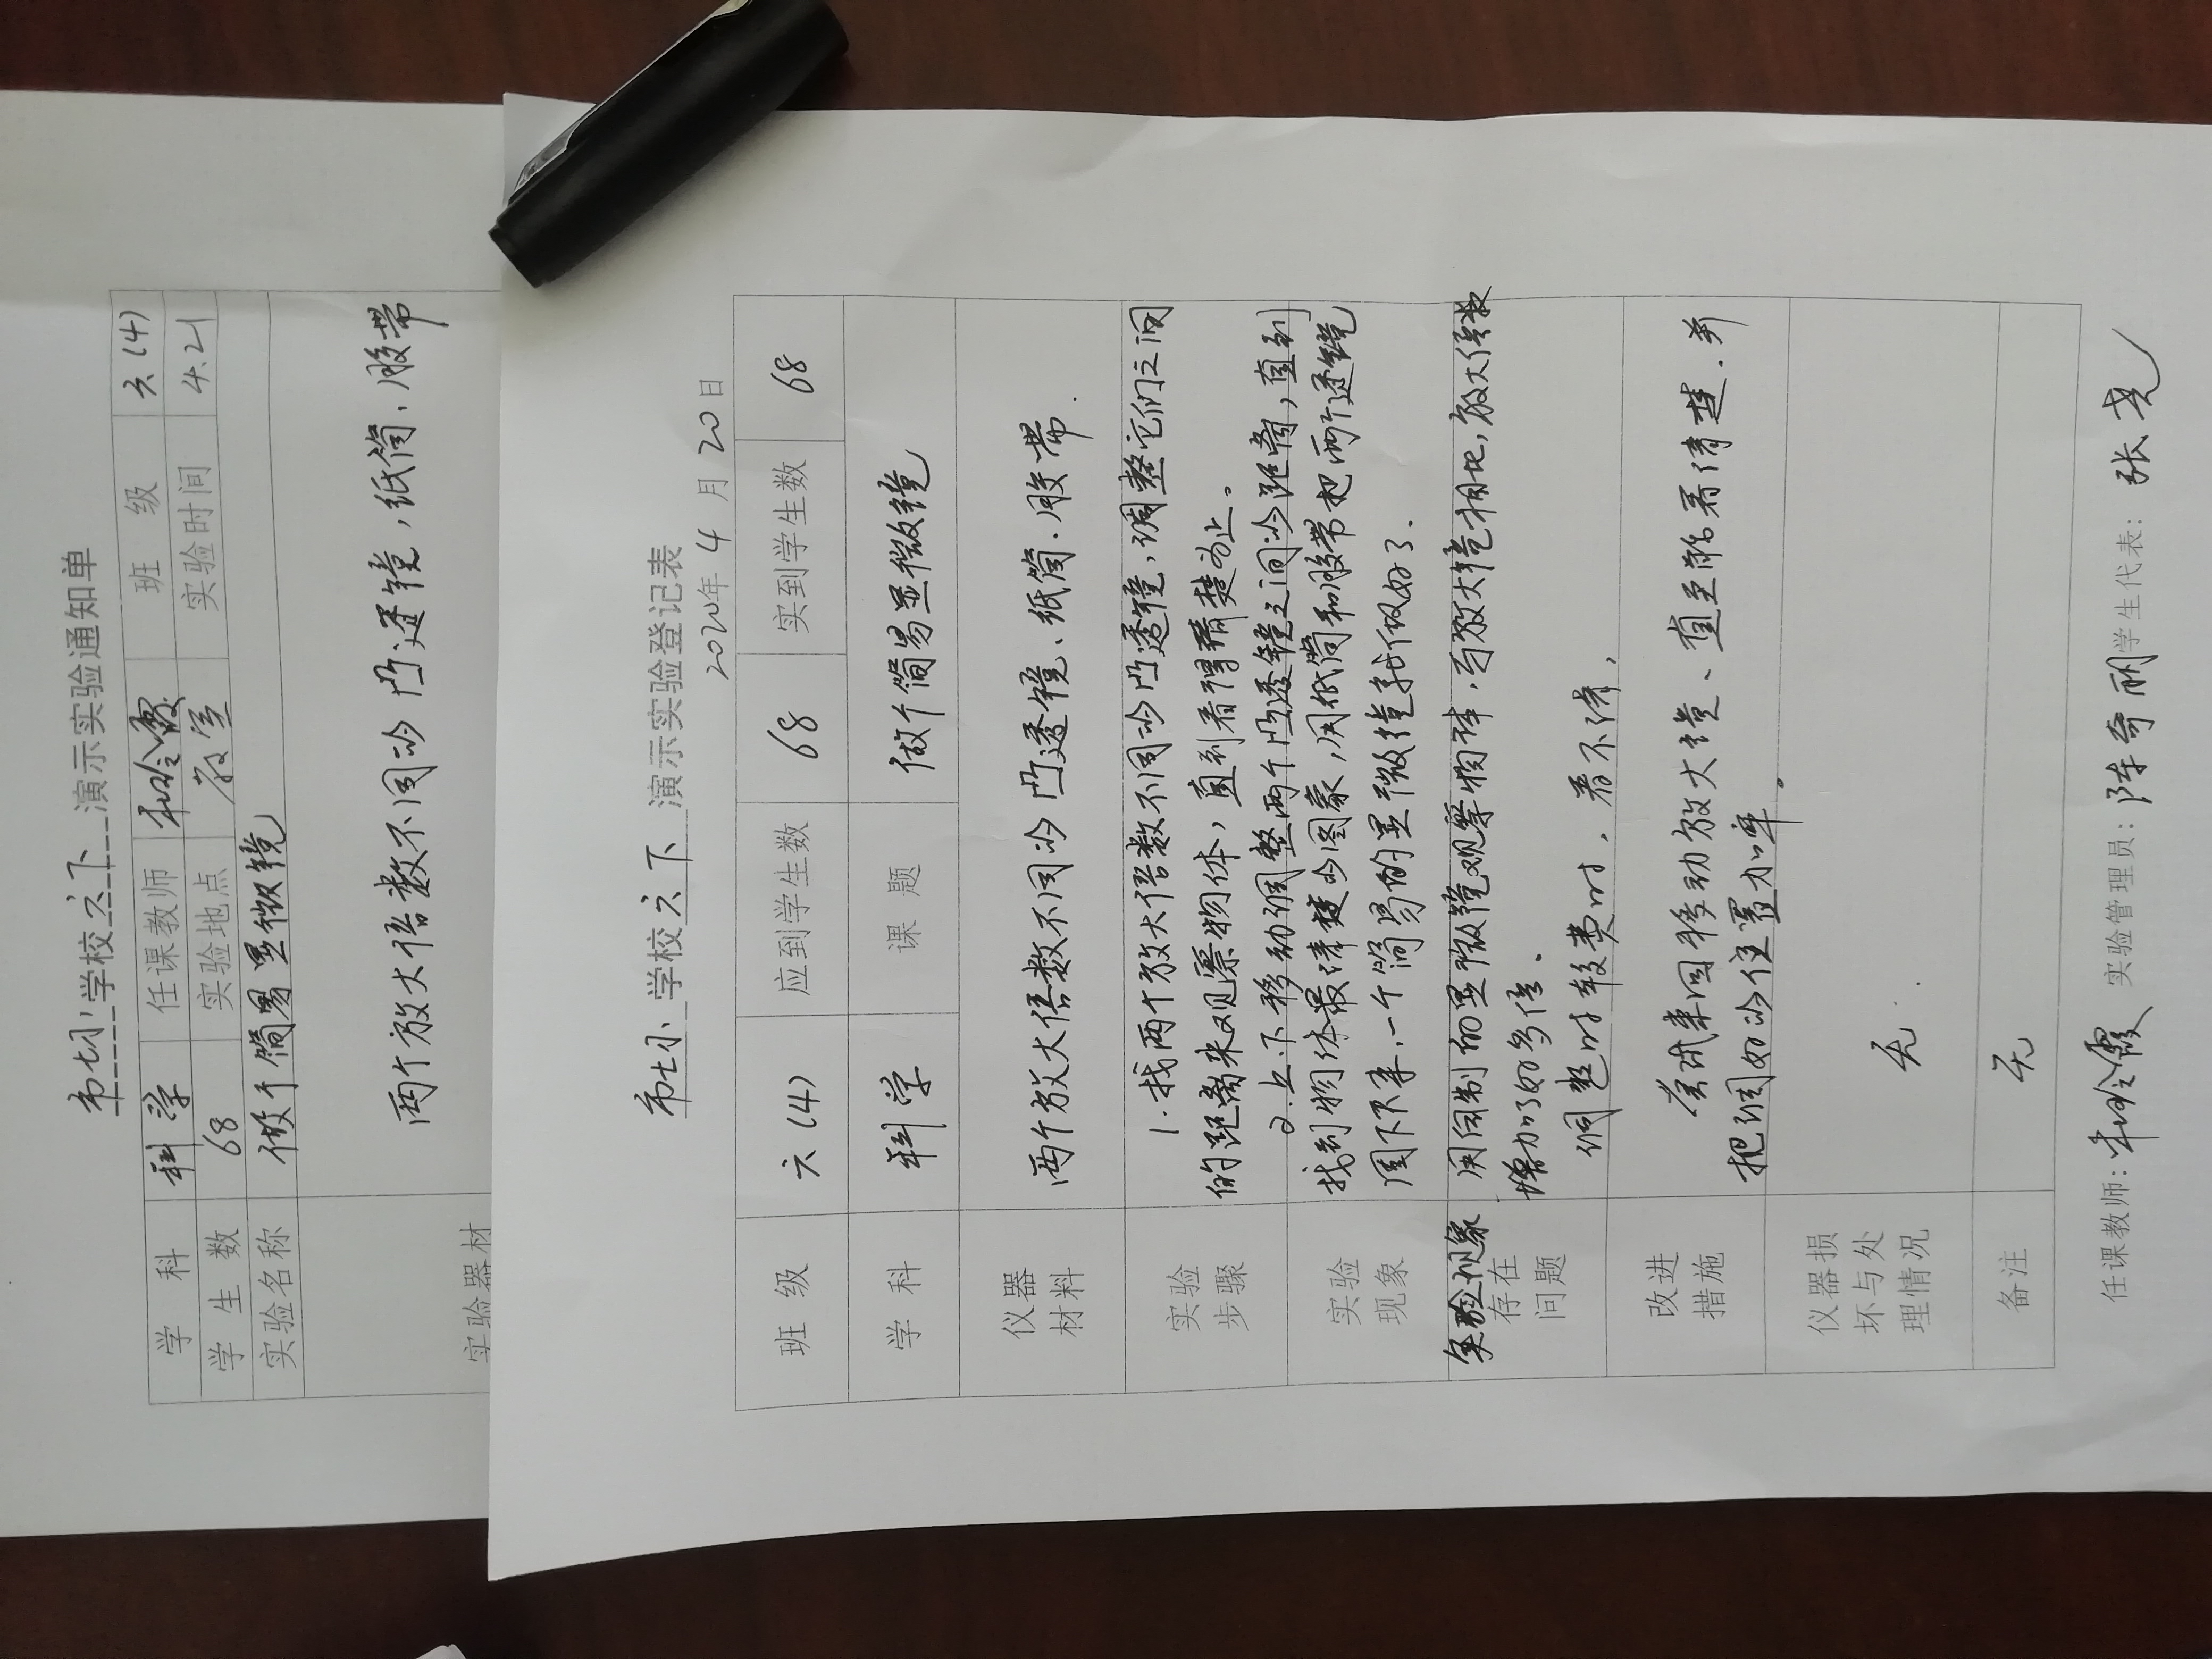 市七小学校六下 演示实验通知单
学 科 科学 任课教师 班 级 六(4)
学 生 数 68 实验地点 教室 实验时间 4.21
实验名称 做个简易显微镜
实验器材 两个放大倍数不同的凸透镜,纸筒、胶带
市七小 学校六下 演示实验登记表
年 4 月 20 日
班 级 六(4) 应到学生数 68 实到学生数 68
学 科 科学 课 题 做个简易显微镜
仪器
材料
两个放大倍数不同的凸透镜、纸筒、胶带.
实验
步骤
1.找两个放大倍数不同的凸透镜,调整它们之间
的距离来观察物体,直到看得清楚为止。
2.上下移动调整两个凸透镜之间的距离,直到
实验
现象
找到物体最清楚的图象,用纸筒和胶带把两个透镜
固下下来,一个简易的显微镜就做好了.
实验现象
存在
问题
用自制的显微镜观察物体,与放大镜相比,放大倍数
增加了好多倍.
调整时较费时,看不清,
改进
措施
尝试来回移动放大镜、直至能看清楚.并
把调好的位置
仪器损
坏与处
理情况
无
备注
无
任课教师: 实验管理员: 陈奇丽 学生代表: 张尧